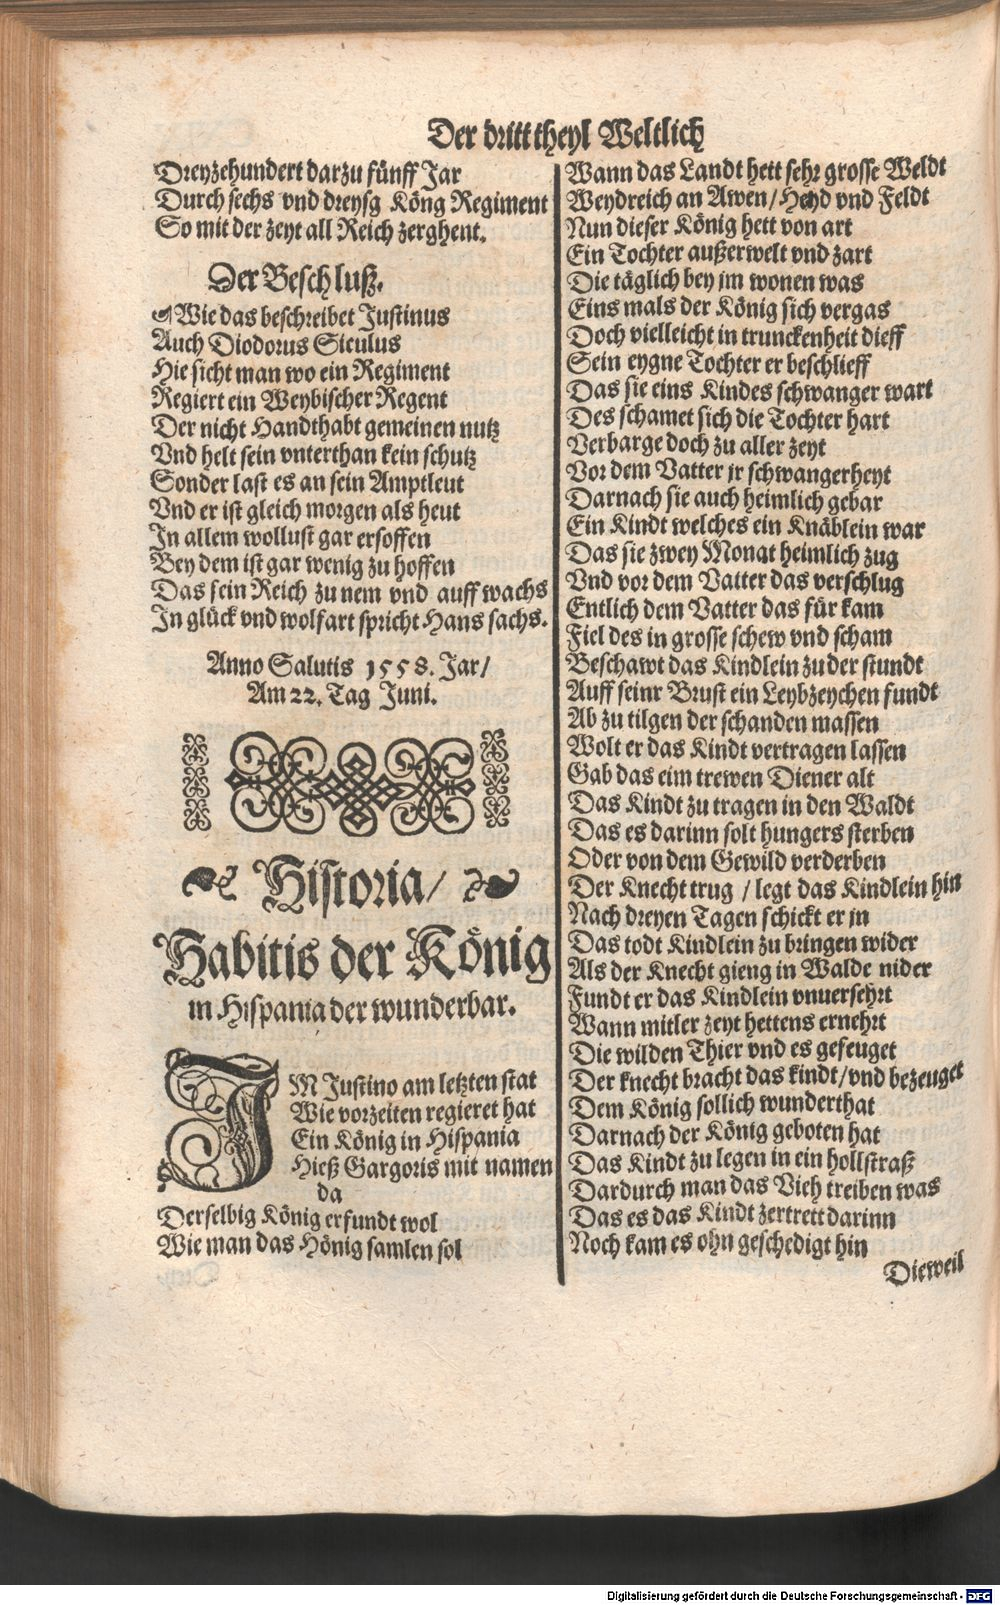 Der dritt theyl Weltlich
Dreyzehundert darzu fünff Jar
Durch sechs vnd dreysg Köng Regiment
So mit der zeyt all Reich zerghent.
Der Beschluß.
Wie das beschreibet Justinus
Auch Diodorus Siculus
Hie sicht man wo ein Regiment
Regiert ein Weybischer Regent
Der nicht Handthabt gemeinen nutz
Vnd helt sein vnterthan kein schutz
Sonder last es an sein Amptleut
Vnd er ist gleich morgen als heut
In allem wollust gar ersoffen
Bey dem ist gar wenig zu hoffen
Das sein Reich zu nem vnd auff wachs
In glück vnd wolfart spricht Hans sachs.
Anno Salutis 1558. Jar/
Am 22. Tag Juni.
Historia/
Habitis der König
in Hispania der wunderbar.
IM Justino am letzten stat
Wie vorzeiten regieret hat
Ein König in Hispania
Hieß Gargoris mit namen
da
Derselbig König erfundt wol
Wie man das Hönig samlen sol
Wann das Landt hett sehr grosse Weldt
Weydreich an Awen/Heyd vnd Feldt
Nun dieser König hett von art
Ein Tochter außerwelt vnd zart
Die täglich bey jm wonen was
Eins mals der König sich vergas
Doch vielleicht in trunckenheit dieff
Sein eygne Tochter er beschlieff
Das sie eins Kindes schwanger wart
Des schamet sich die Tochter hart
Verbarge doch zu aller zeyt
Vor dem Vatter jr schwangerheyt
Darnach sie auch heimlich gebar
Ein Kindt welches ein Knäblein war
Das sie zwey Monat heimlich zug
Vnd vor dem Vatter das verschlug
Entlich dem Vatter das für kam
Fiel des in grosse schew vnd scham
Beschawt das Kindlein zu der stundt
Auff seinr Brust ein Leybzeychen fundt
Ab zu tilgen der schanden massen
Wolt er das Kindt vertragen lassen
Gab das eim trewen Diener alt
Das Kindt zu tragen in den Waldt
Das es darinn solt hungers sterben
Oder von dem Gewild verderben
Der Knecht trug / legt das Kindlein hin
Nach dreyen Tagen schickt er jn
Das todt Kindlein zu bringen wider
Als der Knecht gieng in Walde nider
Fundt er das Kindlein vnuersehrt
Wann mitler zeyt hettens ernehrt
Die wilden Thier vnd es geseuget
Der knecht bracht das kindt/vnd bezeuget
Dem König sollich wunderthat
Darnach der König geboten hat
Das Kindt zu legen in ein hollstraß
Dardurch man das Vieh treiben was
Das es das Kindt zertrett darinn
Noch kam es ohn geschedigt hin
Dieweil
Digitalisierung gefördert durch die Deutsche Forschungsgemeinschaft - DFG